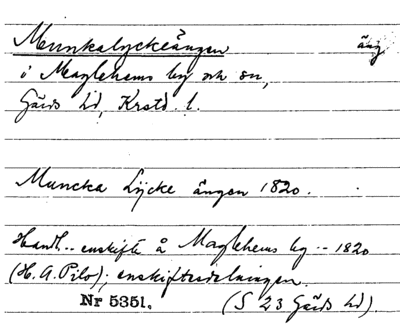 Munkalyckeängen äng
i Maglehems by och sn,
Gärds hd, Krstd. l.
Muncka Lycke ängen 1820.
Handl. .. enskifte å Maglehems by .. 1820
(H. A. Pilo); enskiftesdelningen.
Nr 5351. (S 23 Gärds hd)